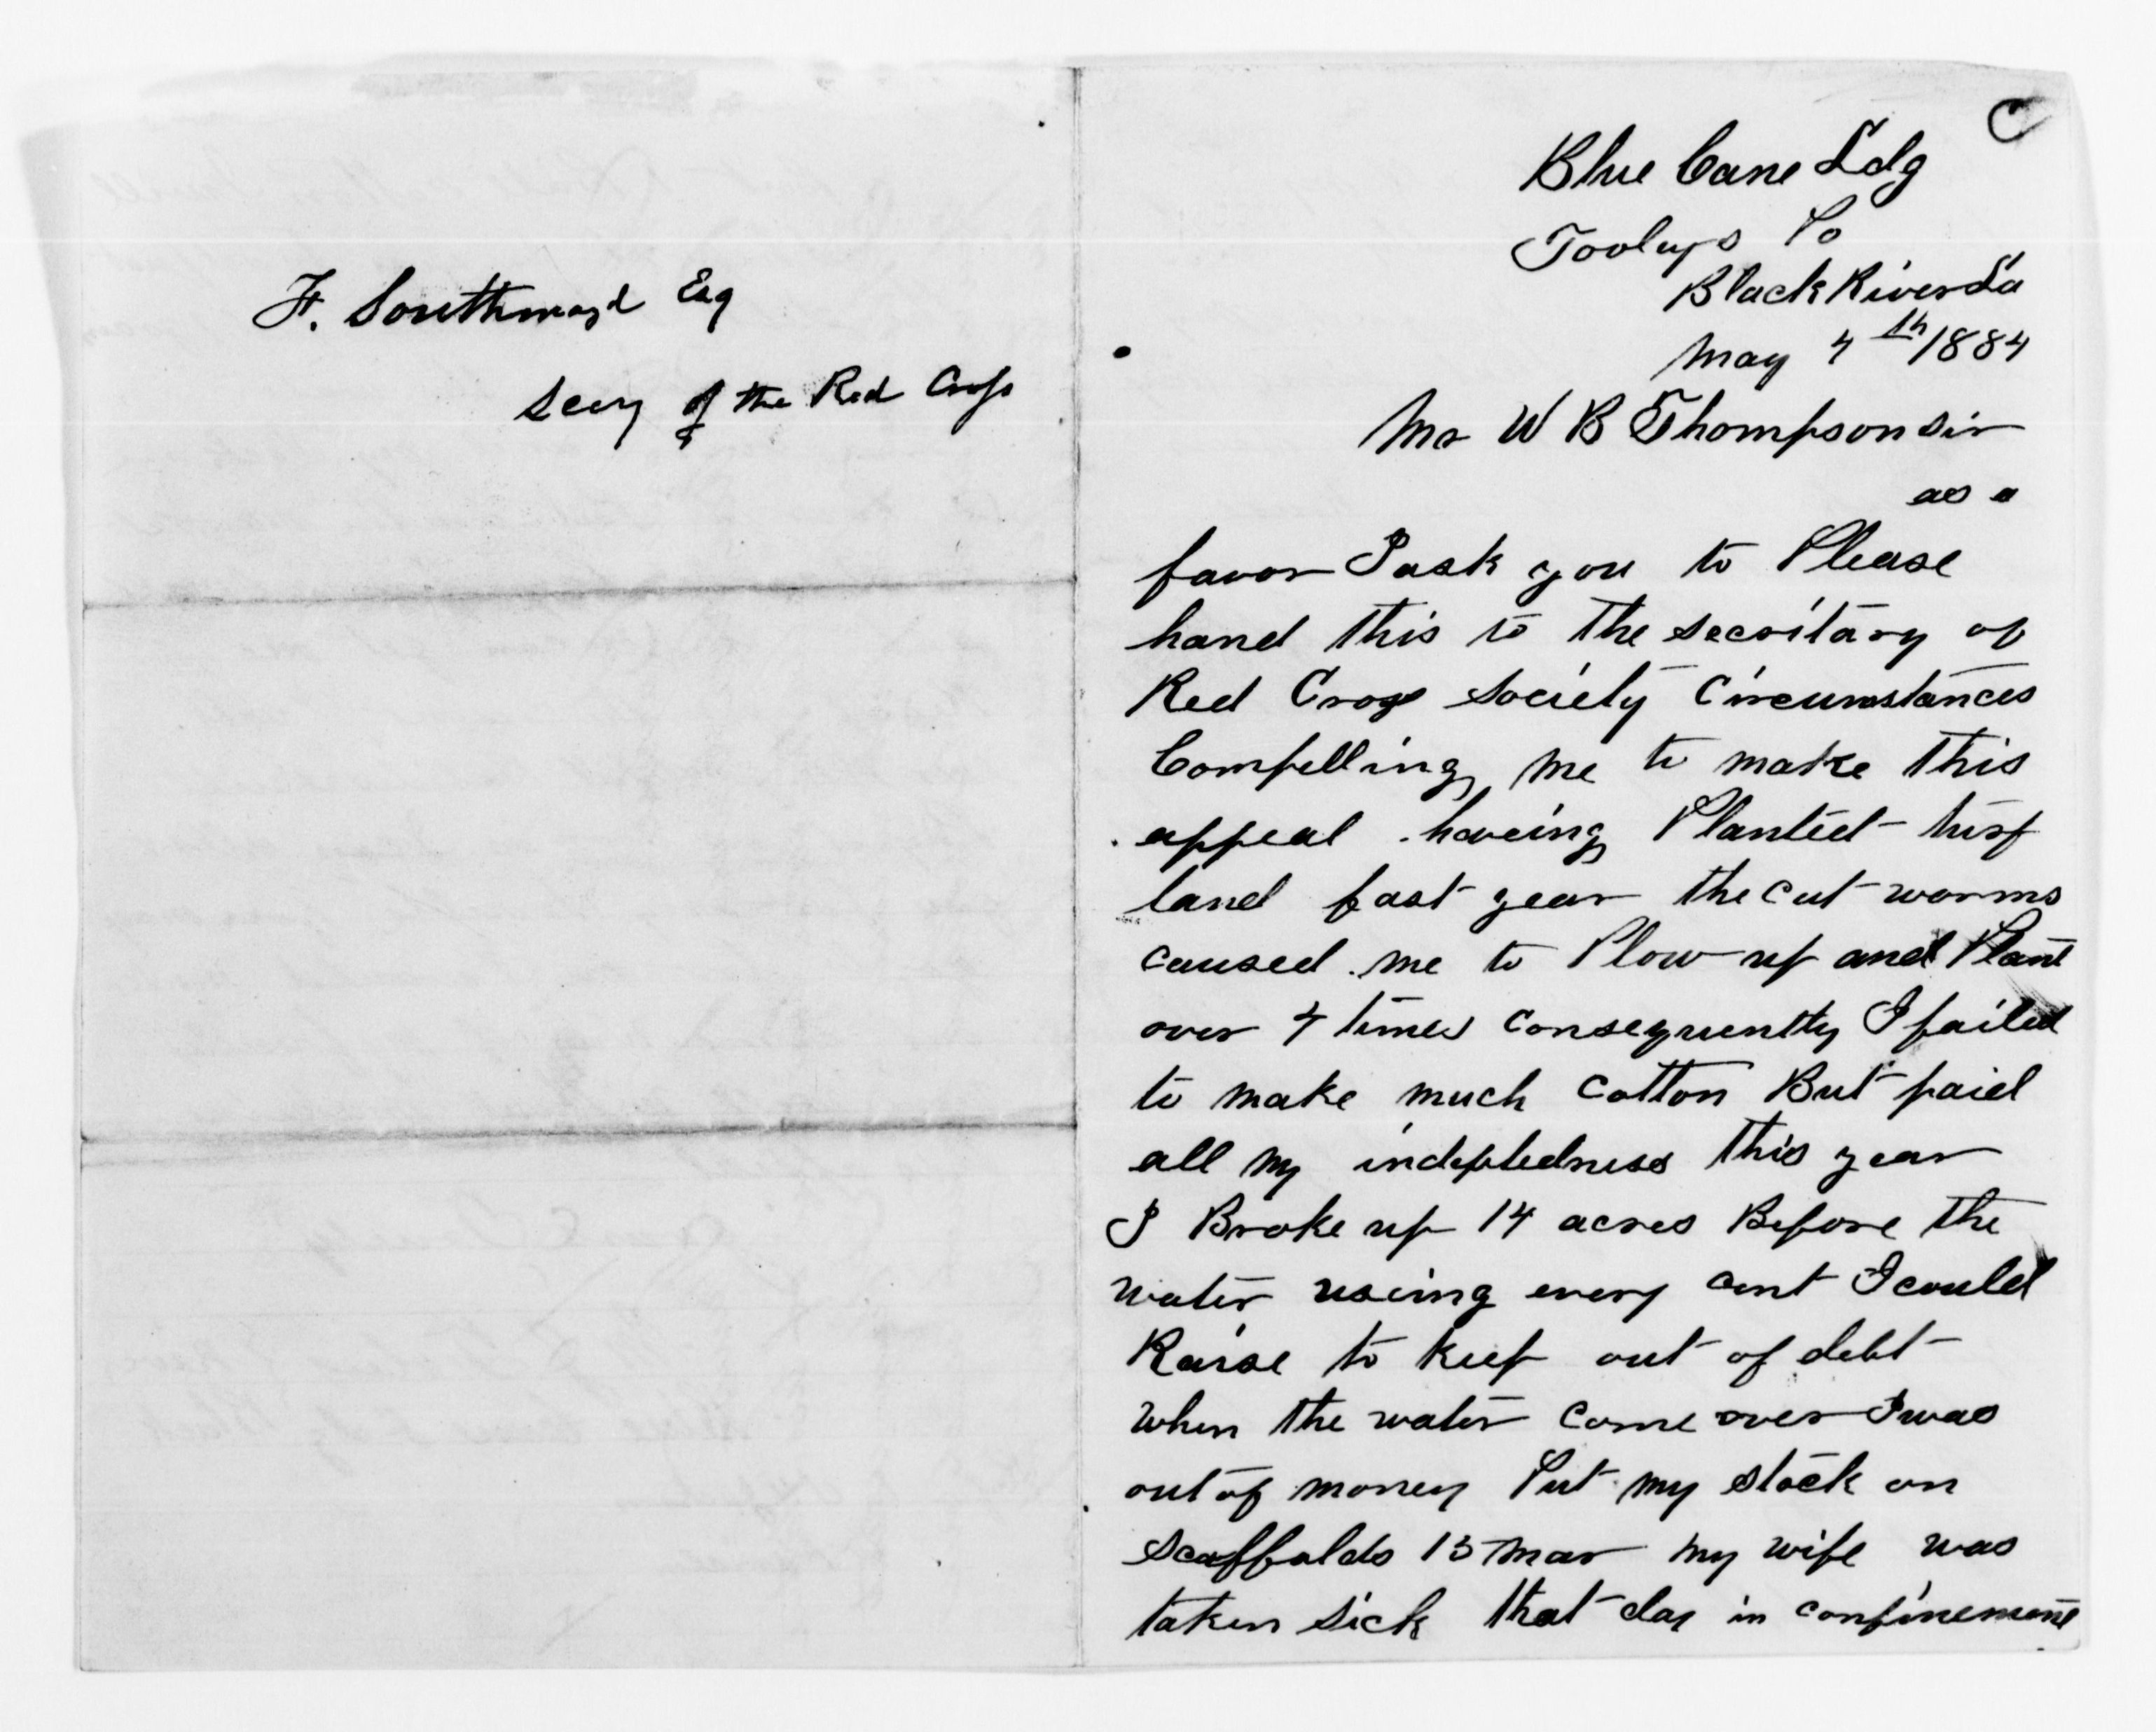 F. Southmayd Esq
Secy of the Red Cross
C
Blue Cane Ldg
Tooleys Po
Black River La
May 4th 1884
Mr W B Thompson sir
as a
favor I ask you to Please
hand this to the secritary of
Red Cross Society Circumstances
Compelling me to make this
appeal haveing Planted turf
land past year the cut worms
caused me to Plow up and Plant
over 4 times consequently I failed
to make much cotton But paid
all my indeptedness this year
I Broke up 14 acres Before the
water useing every cent I could
Raise to keep out of debt
when the water come over I was
out of money Put my stock on
scaffolds 13 mar my wife was
taken sick that day in confinement